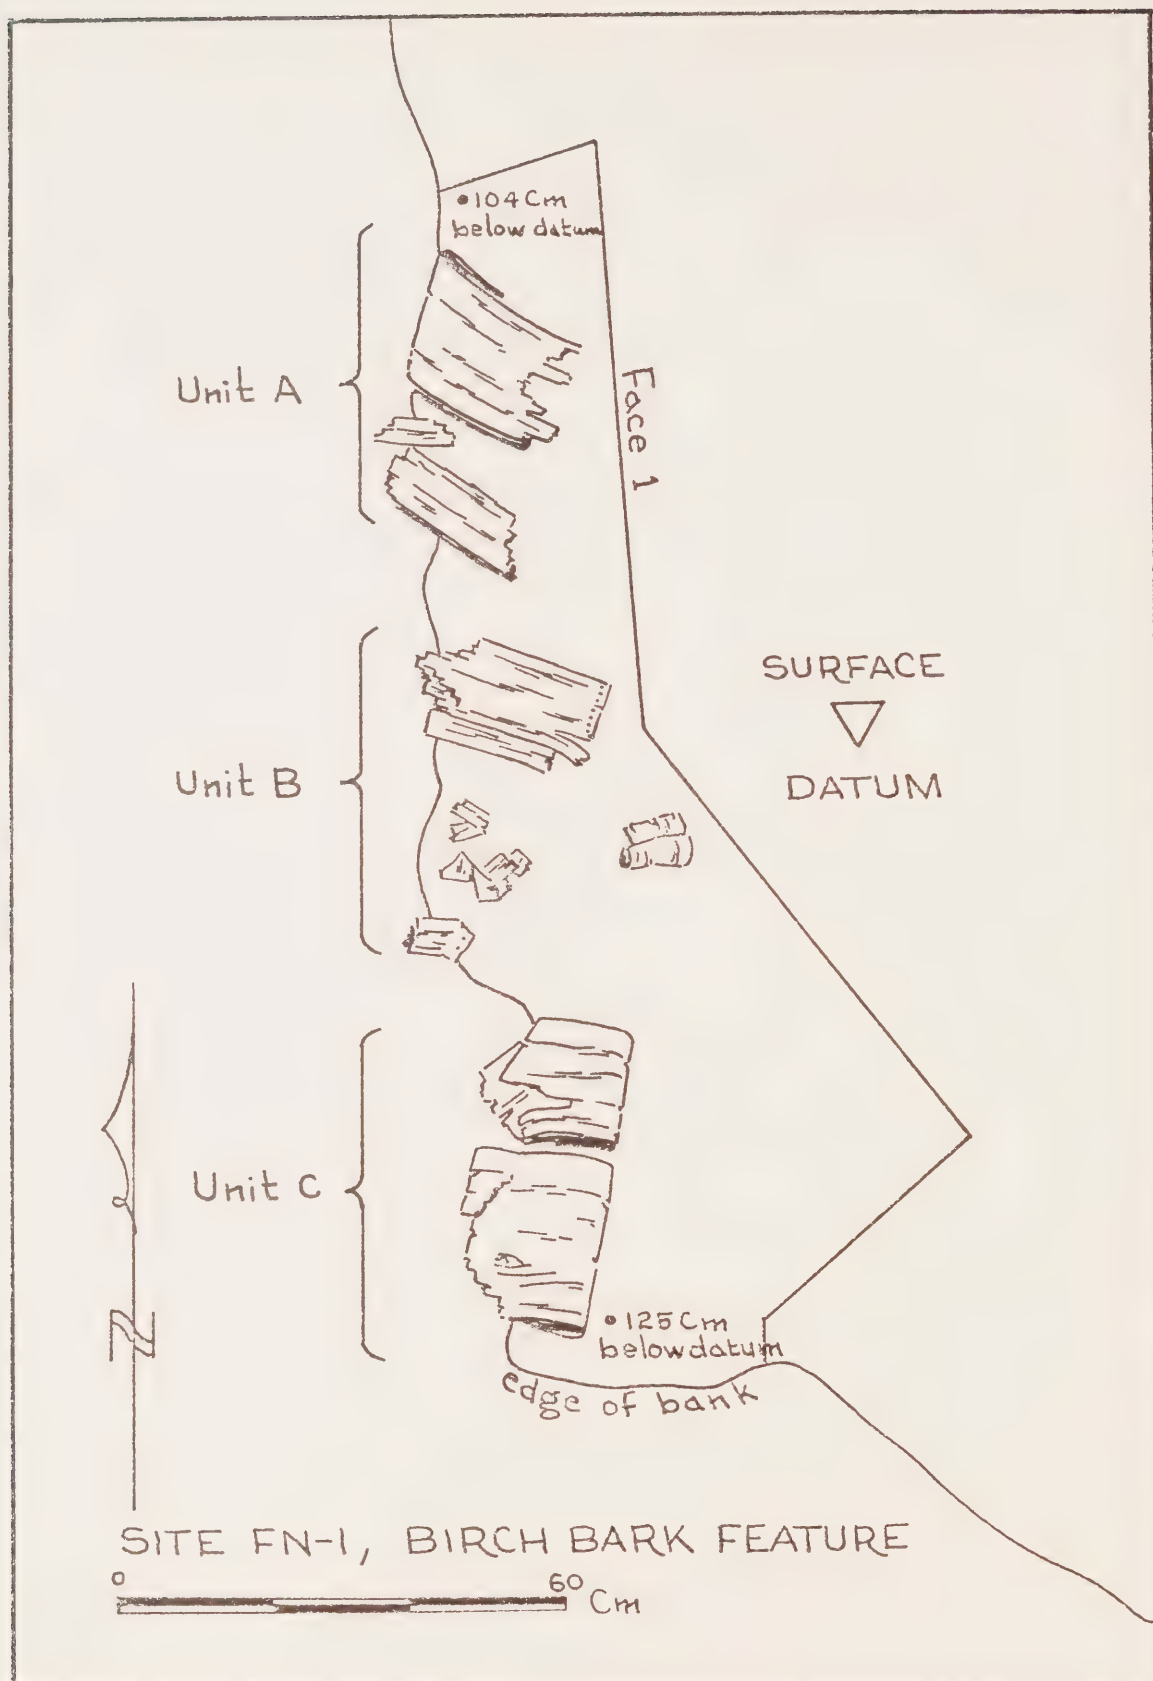 •104 Cm
below datum
Unit A
Face 1
SURFACE
DATUM
Unit B
Unit C
•125 Cm
below datum
edge of bank
N
SITE FN-1, BIRCH BARK FEATURE
0 60 Cm